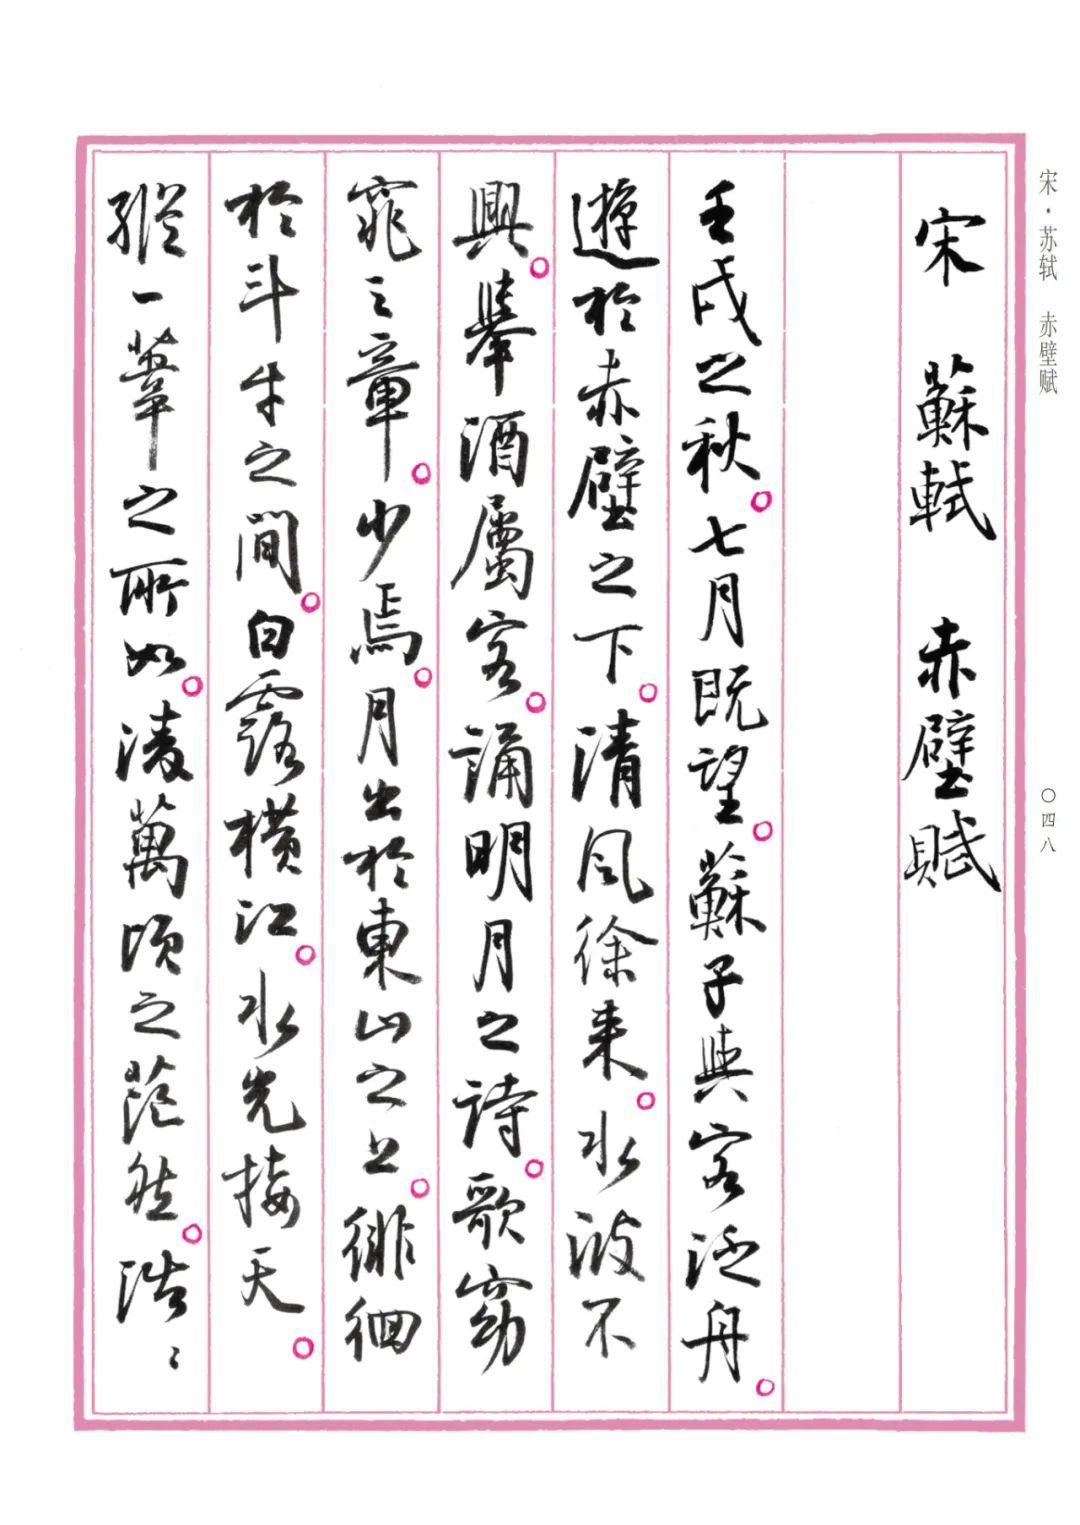 宋·苏轼 赤壁赋
〇四八
宋 蘇軾 赤壁賦
壬戌之秋。七月既望。蘇子與客泛舟。
遊於赤壁之下。清風徐来。水波不
興。舉酒屬客。誦明月之詩。歌窈
窕之章。少焉。月出於東山之上。徘徊
於斗牛之間。白露橫江。水光接天。
縱一葦之所如。凌萬頃之茫然。浩〻